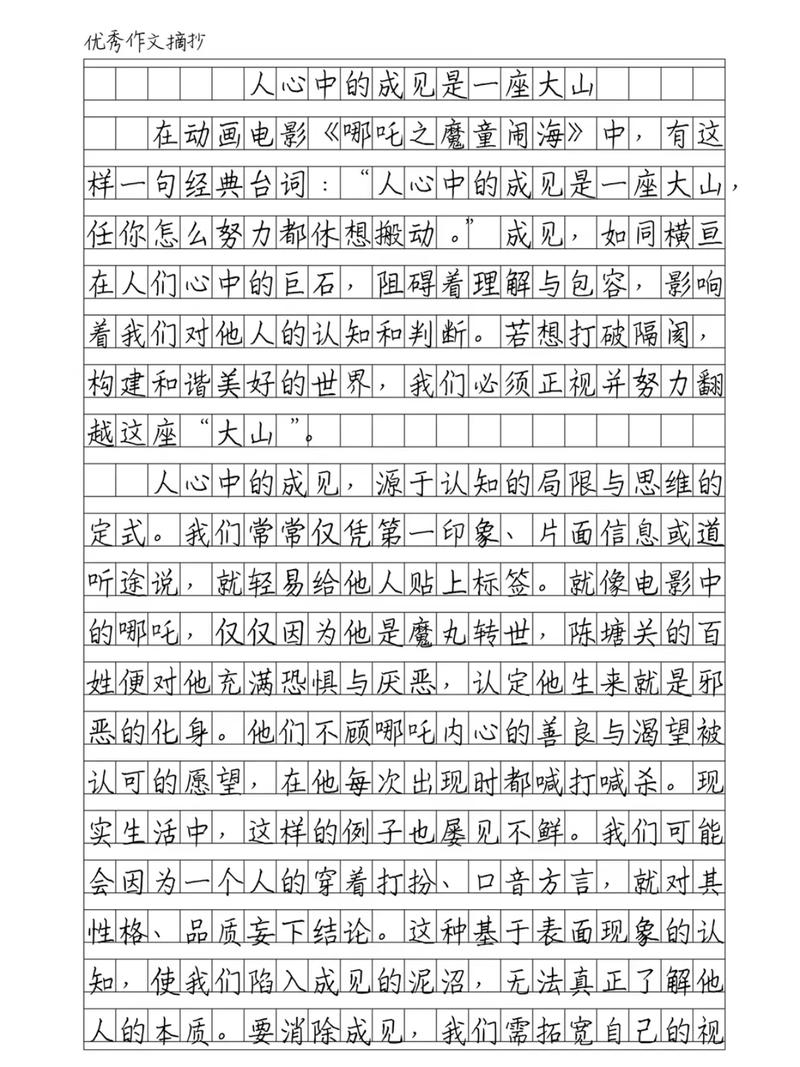 优秀作文摘抄
人心中的成见是一座大山
在动画电影《哪吒之魔童闹海》中，有这
样一句经典台词：“人心中的成见是一座大山，
任你怎么努力都休想搬动。”成见，如同横亘
在人们心中的巨石，阻碍着理解与包容，影响
着我们对他人的认知和判断。若想打破隔阂，
构建和谐美好的世界，我们必须正视并努力翻
越这座“大山”。
人心中的成见，源于认知的局限与思维的
定式。我们常常仅凭第一印象、片面信息或道
听途说，就轻易给他人贴上标签。就像电影中
的哪吒，仅仅因为他是魔丸转世，陈塘关的百
姓便对他充满恐惧与厌恶，认定他生来就是邪
恶的化身。他们不顾哪吒内心的善良与渴望被
认可的愿望，在他每次出现时都喊打喊杀。现
实生活中，这样的例子也屡见不鲜。我们可能
会因为一个人的穿着打扮、口音方言，就对其
性格、品质妄下结论。这种基于表面现象的认
知，使我们陷入成见的泥沼，无法真正了解他
人的本质。要消除成见，我们需拓宽自己的视